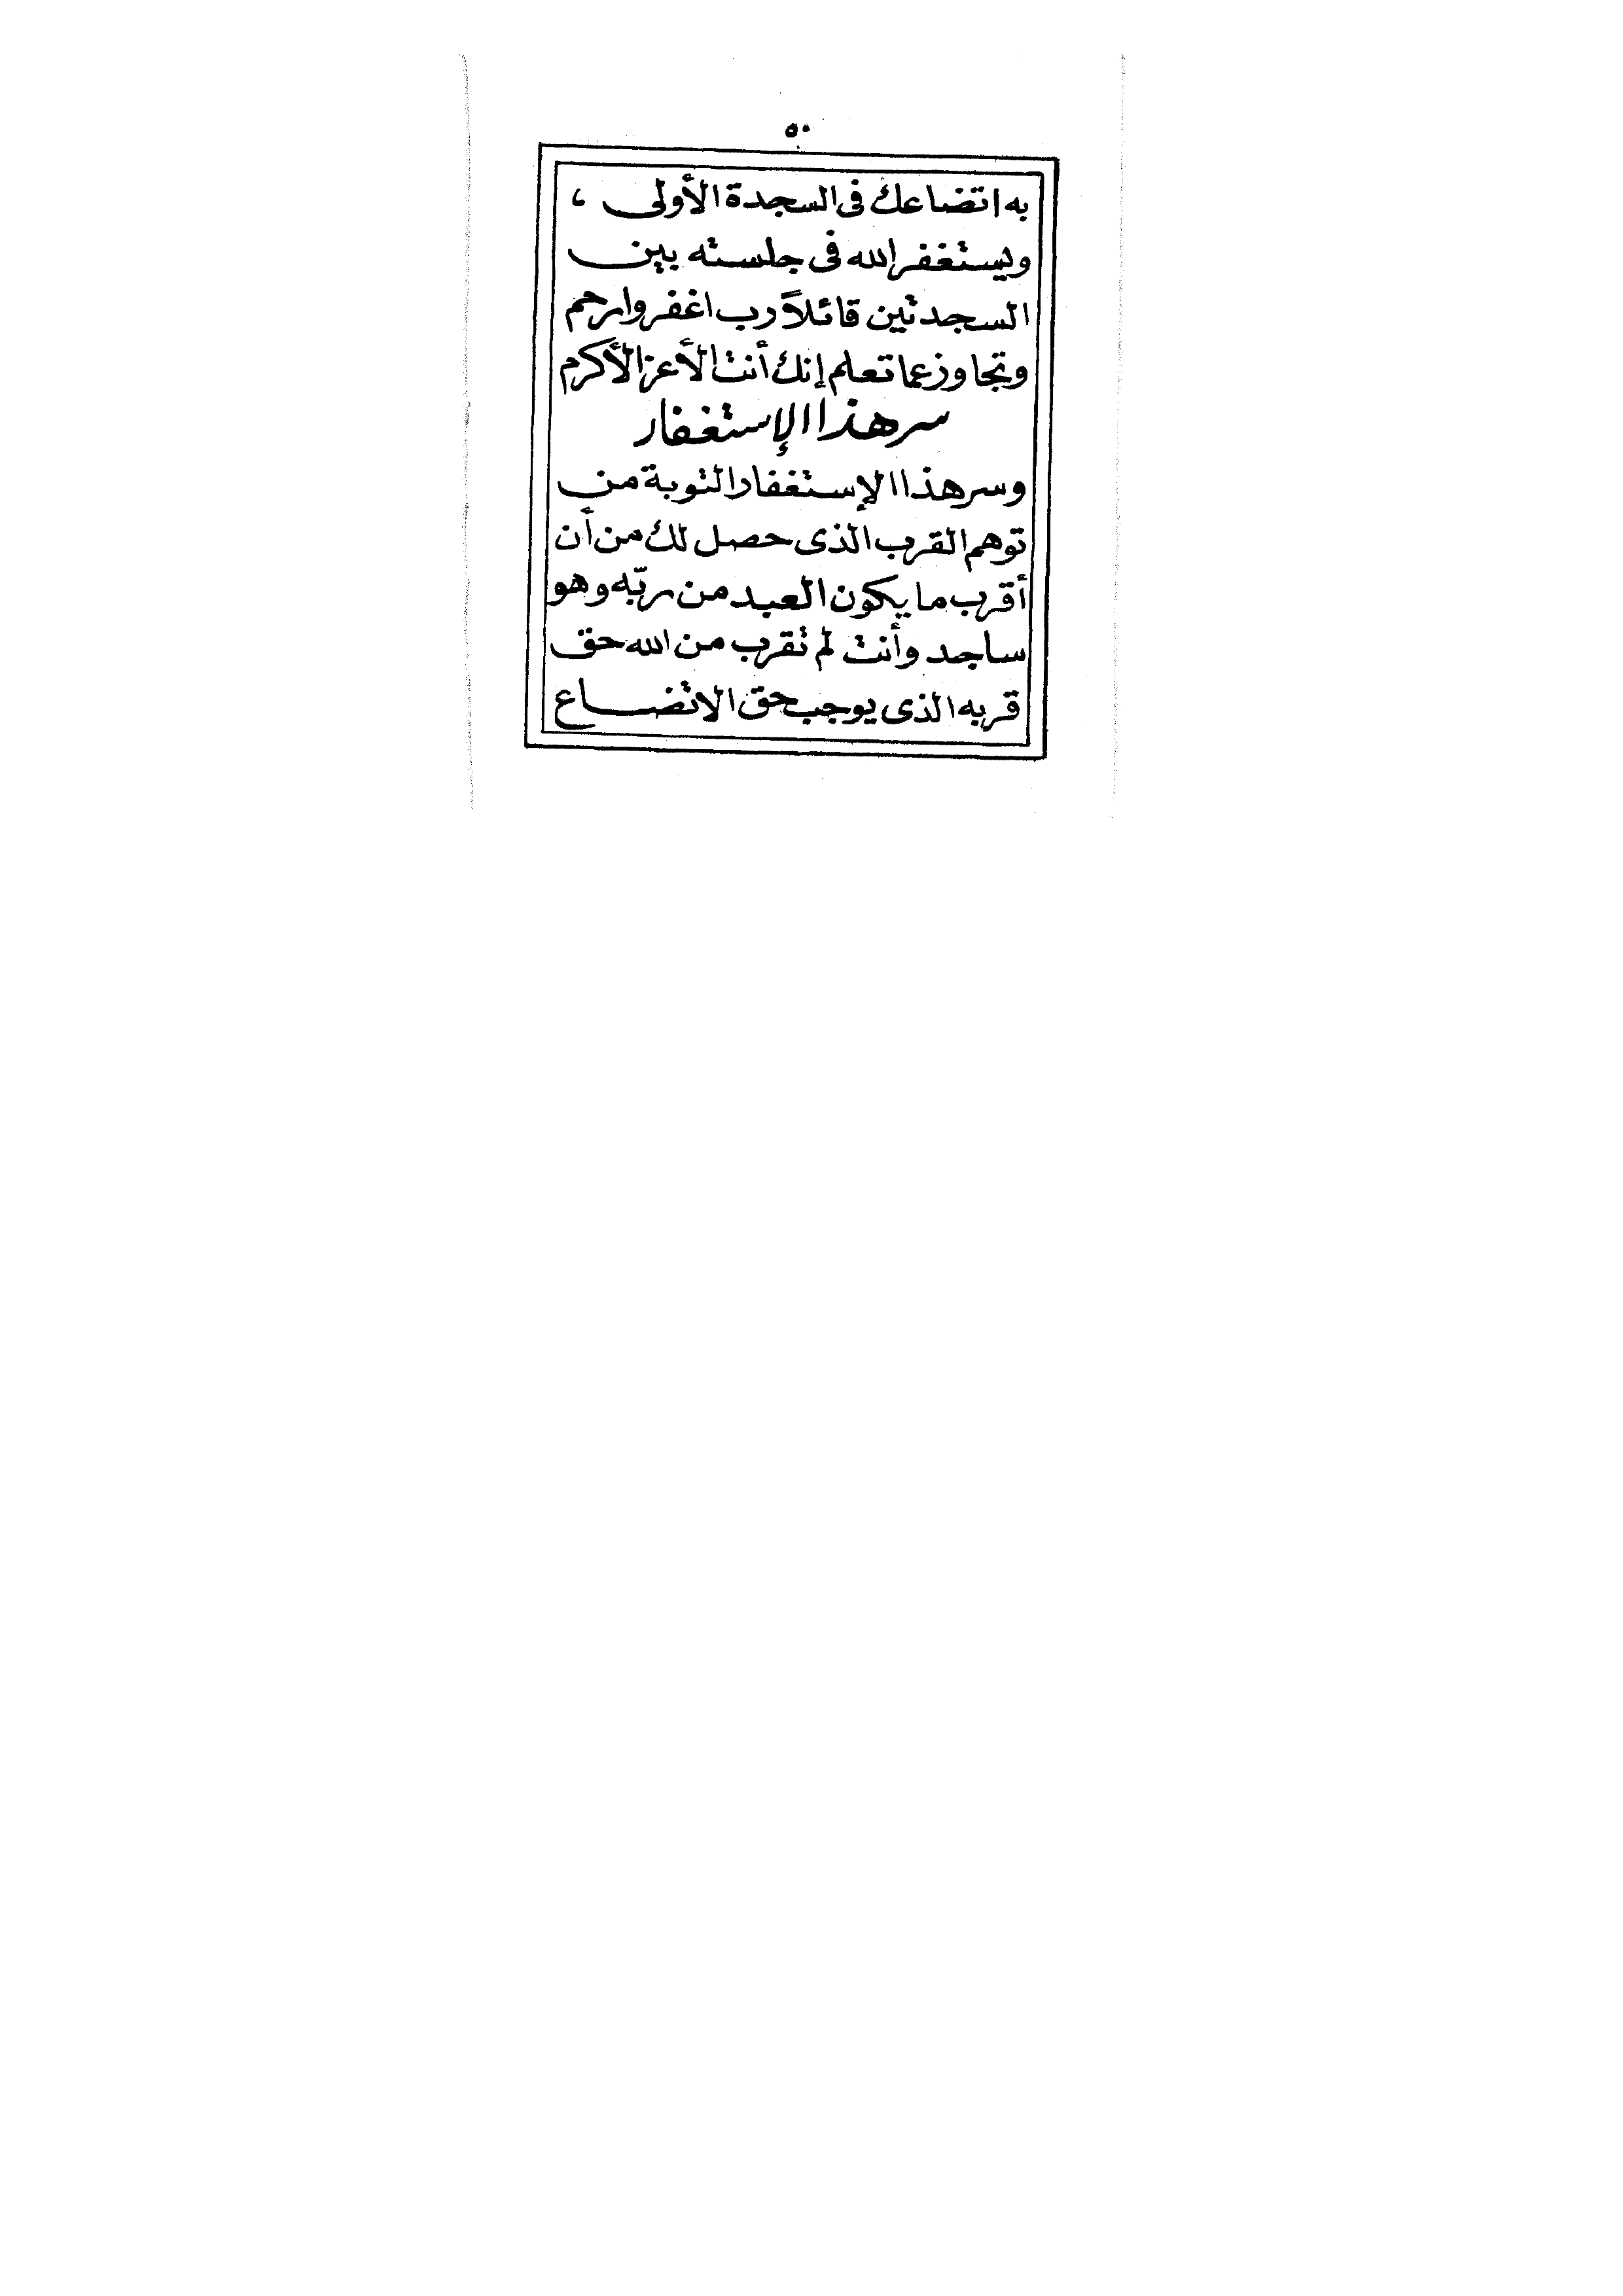 ٥٠
به اتضاعك فى السجدة الأولى ،
ويستغفر الله فى جلسته بين
السجدتين قائلاً رب اغفر وارحم
وتجاوز عما تعلم إنك أنت الأعز الأكرم
سر هذا الإستغفار
وسر هذا الإستغفار التوبة من
توهم القرب الذى حصل لك من أن
أقرب ما يكون العبد من ربّه وهو
ساجد وأنت لم تقرب من الله حق
قربه الذى يوجب حق الاتضاع